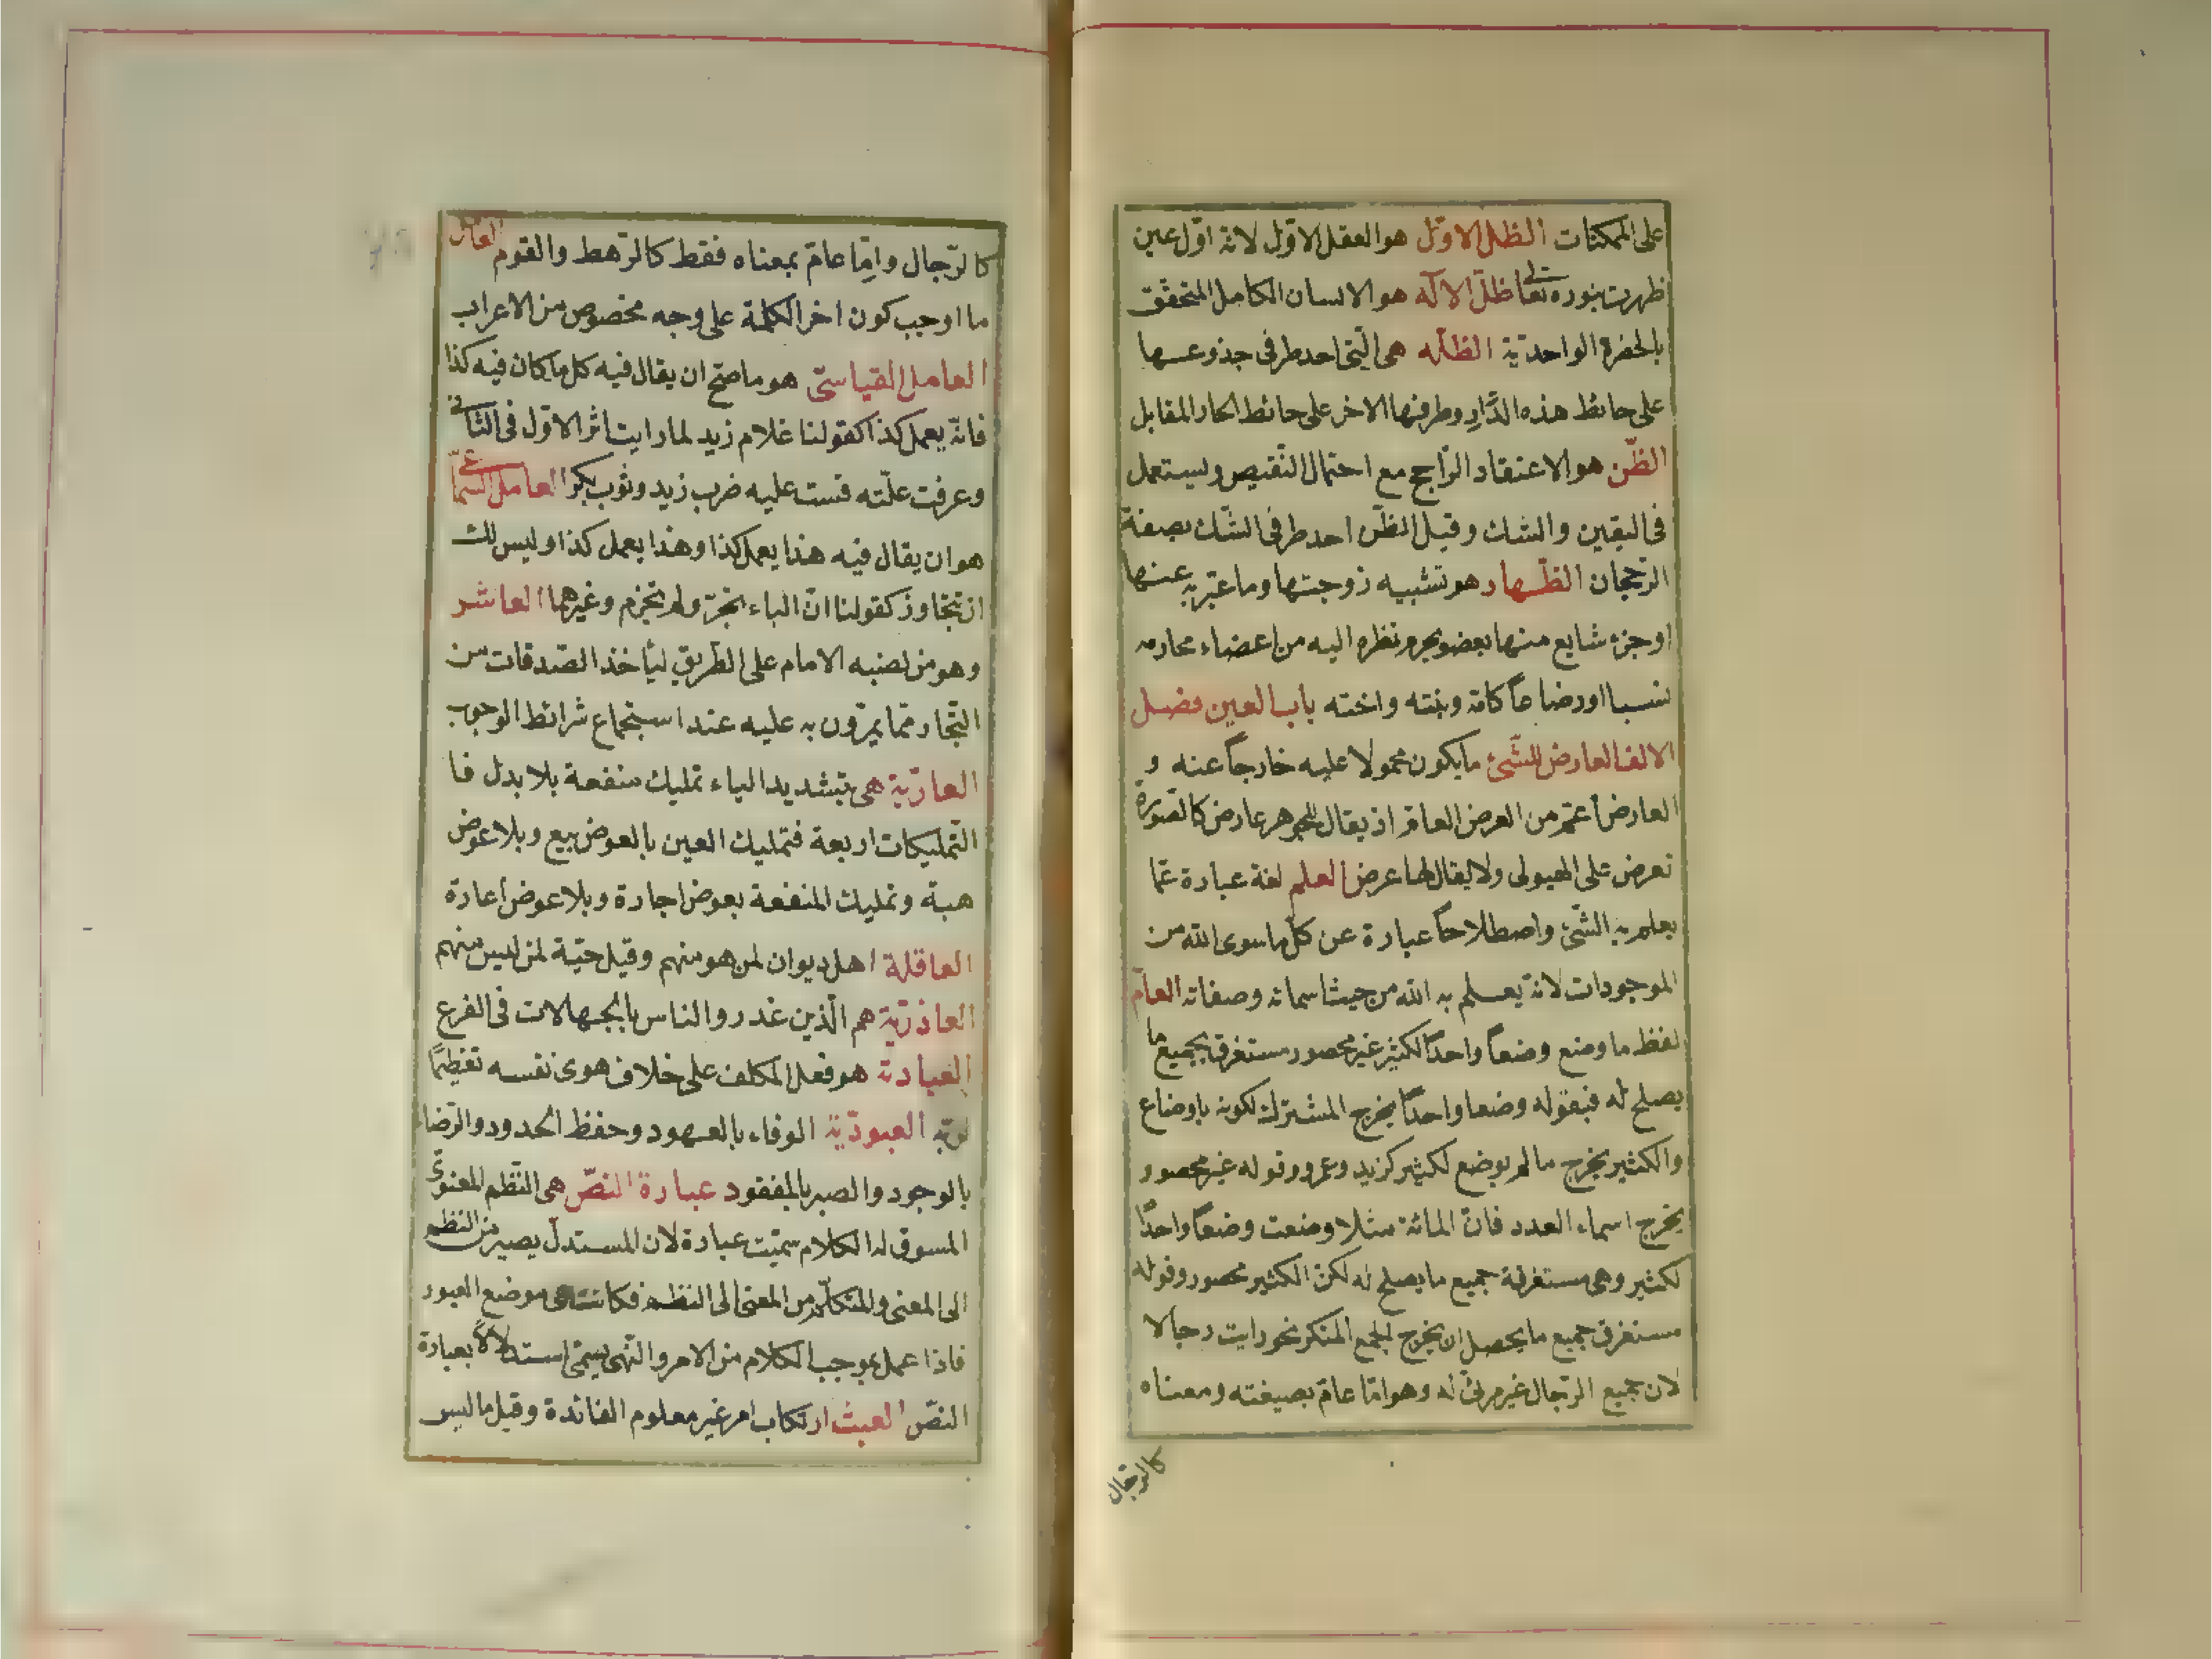 على الممكنات الظل الاوّل هو العقل الاوّل لانه اوّل عين
ظهرت بنوره تعالى ظلّ الاله هو الانسان الكامل المتحقق
بالحضرة الواحديّة الظلّه هى الّتى احد طرفى جذوعها
على حائط هذه الدّارِ وطرفها الاخر على حائط الجار المقابل
الظّن هو الاعتقاد الرّاجح مع احتمال النّقيص ويستعمل
فى اليقين والشك وقيل الظّن احد طرفى الشّك بصفة
الرّجحان الظّهار هو تشبيه زوجتها وما عبّر به عنها
او جزء شايع منها بعضو يحرم نظره اليه من اعضاء محارمه
نسبا او رضاعاً كامّه وبنته واخته باب العين فصل
الالف العارض للشّئ ما يكون محمولا عليه خارجاً عنه و
العارض أعمّ من العرض العامّ اذ يقال للجوهر عارض كالصّورة
تعرض على الهيولى ولا يقال لها عرض العلم لغة عبارة عمّا
يعلم به الشّئ واصطلاحاً عبارة عن كلّ ما سوى الله من
الموجودات لانه يعلم به الله من حيث اسمائه وصفاته العامّ
لفظ ما وضع وضعاً واحداً لكثير غير محصور مستغرق بجميع ما
يصلح له فبقوله وضعا واحداً يخرج المشترك لكونه باوضاع
والكثير يخرج ما لم يوضع لكثير كزيد وعمرو وقوله غير محصور
يخرج اسماء العدد فان المائة مثلا وضعت وضعاً واحداً
لكثير وهى مستغرقة جميع ما يصلح له لكن الكثير محصور وقوله
مستغرق جميع ما يحصل ان يخرج الجمع المنكر نحو رايت رجالا
لان جميع الرّجال غير مرئى له وهو امّا عامّ بصيغته ومعناه
كالرّجال
كالرّجال وامّا عامّ بمعناه فقط كالرّهط والقوم العامل
ما اوجب كون اخر الكلمة على وجه مخصوص من الاعراب
العامل القياسىّ هو ما صحّ ان يقال فيه كل ما كان فيه كذا
فانّه يعمل كذا كقولنا غلام زيد لما رايت اثر الاوّل فى الثانى
وعرفت علّته قست عليه ضرب زيد وثوب بكر العامل السّماعى
هو ان يقال فيه هذا يعمل كذا وهذا يعمل كذا وليس لك
ان تتجاوز كقولنا انّ الباء يجرّ ولم يجزم وغيرهما العاشر
وهو من نصبه الامام على الطّريق ليأخذ الصّدقات من
التّجار ممّا يمرّون به عليه عند استجماع شرائط الوجوب
العاريّة هى بتشديد الياء تمليك منفعة بلا بدل فا
التّمليكات اربعة فتمليك العين بالعوض بيع وبلا عوض
هبة وتمليك المنفعة بعوض اجارة وبلا عوض إعارة
العاقلة اهل ديوان لمن هو منهم وقيل حيّة لمن ليس منهم
العاذريّة هم الّذين عذروا الناس بالجهالات فى الفرع
العبادة هو فعل المكلف على خلاف هوى نفسه تعظيمًا
لربّه العبوديّة الوفاء بالعهود وحفظ الحدود والرّضاء
بالوجود والصبر بالمفقود عبارة النصّ هى النّظم المعنوىّ
المسوق له الكلام سمّيت عبارة لان المستدلّ يصير من النظم
الى المعنى والمتكلّم من المعنى الى النظم فكانت هى موضع العبور
فاذا عمل بموجب الكلام من الامر والنّهى يسمّى استدلالاً بعبارة
النصّ العبث ارتكاب امر غير معلوم الفائدة وقيل ما ليس